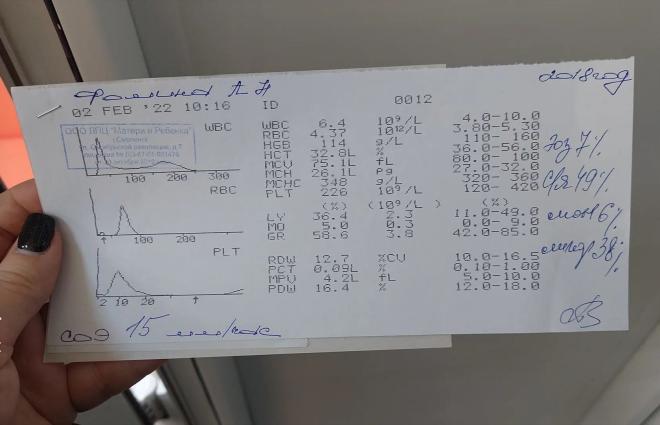 2018 год
02 FEB '22 10:16 ID 0012
ООО ДПЦ "Матери и Ребенка"
г.Смоленск
WBC
WBC 6.4 10⁹/L 4.0-10.0
RBC 4.37 10¹²/L 3.80-5.30
HGB 114 g/L 110- 160
HCT 32.8L % 36.0-56.0
MCV 75.1L fL 80.0- 100
MCH 26.1L Pg 27.0-32.0
MCHC 348 g/L 320- 360
PLT 226 10⁹/L 120- 420
эоз 7%
с/я 49%
мон 6%
лимф 38%
100 200 300
RBC
(%) (10⁹/L ) (%)
LY 36.4 2.3 11.0-49.0
MO 5.0 0.3 0.0- 9.0
GR 58.6 3.8 42.0-85.0
100 200
PLT
RDW 12.7 %CV 10.0-16.5
PCT 0.09L % 0.10-1.00
MPV 4.2L fL 5.0-10.0
PDW 16.4 % 12.0-18.0
2 10 20
СОЭ 15 мм/час